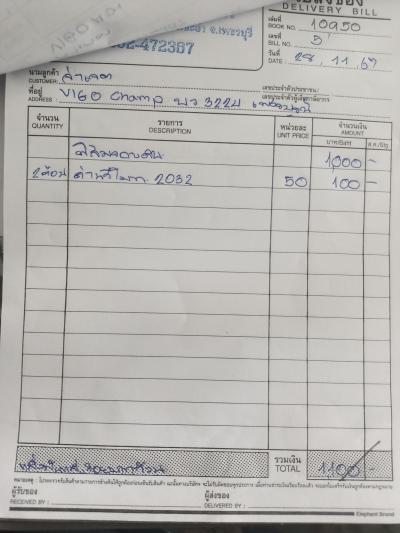 DELIVERY BILL
จ.เพชรบุรี
เล่มที่
BOOK NO. 10950
-472387
เลขที่
BILL NO. 5
วันที่
DATE: 28, 11, 67
นามลูกค้า
CUSTOMER
เลขประจำตัวประชาชน /
ที่อยู่
เลขประจำตัวผู้เสียภาษีอากร
ADDRESS: VIGO Champ 3224 เพชรบุรี
จำนวน รายการ หน่วยละ จำนวนเงิน
QUANTITY DESCRIPTION UNIT PRICE AMOUNT
บาท/Baht ส.ต./Stg.
1,000 -
2 ก้อน ถ่านรีโมท 2032 50 100 -
รวมเงิน
TOTAL 1,100 -
หนึ่งพันหนึ่งร้อยบาทถ้วน
ผู้รับของ ผู้ส่งของ
RECEIVED BY: DELIVERED BY:
Elephant Brand